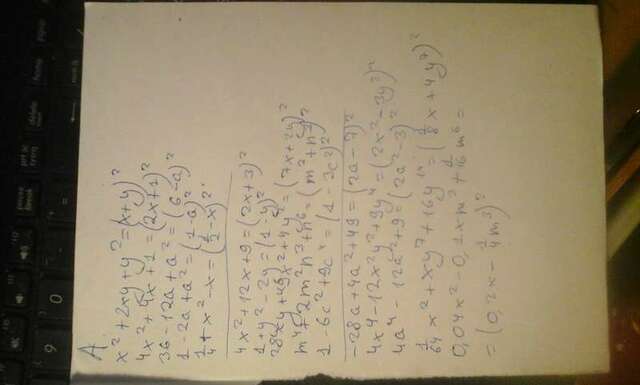 A.
x² + 2xy + y² = (x + y)²
4x² + 4x + 1 = (2x + 1)²
36 - 12a + a² = (6 - a)²
1 - 2a + a² = (1 - a)²
1/4 + x² - x = (1/2 - x)²
4x² + 12x + 9 = (2x + 3)²
1 + y² - 2y = (1 - y)²
28xy + 49x² + 4y² = (7x + 2y)²
m⁴ + 2m²n³ + n⁶ = (m² + n³)²
1 - 6c² + 9c⁴ = (1 - 3c²)²
-28a + 4a² + 49 = (2a - 7)²
4x⁴ - 12x²y² + 9y⁴ = (2x² - 3y²)²
4a⁴ - 12a² + 9 = (2a² - 3)²
1/64 x² + xy⁷ + 16y¹⁴ = (1/8 x + 4y⁷)²
0,04x² - 0,1xm³ + 1/16 m⁶ =
= (0,2x - 1/4 m³)²